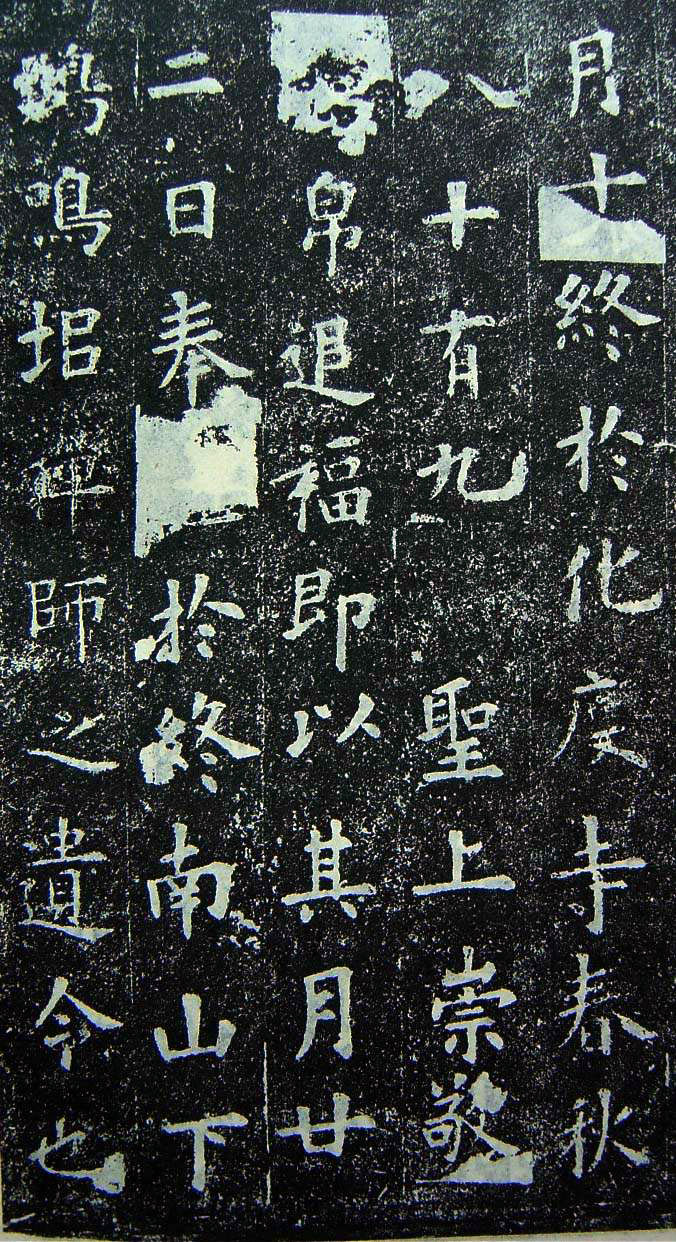 月十終於化度寺春秋
八十有九聖上崇敬
帛追福即以其月廿
二日奉於終南山下
鵄鳴堆禪師之遺令也